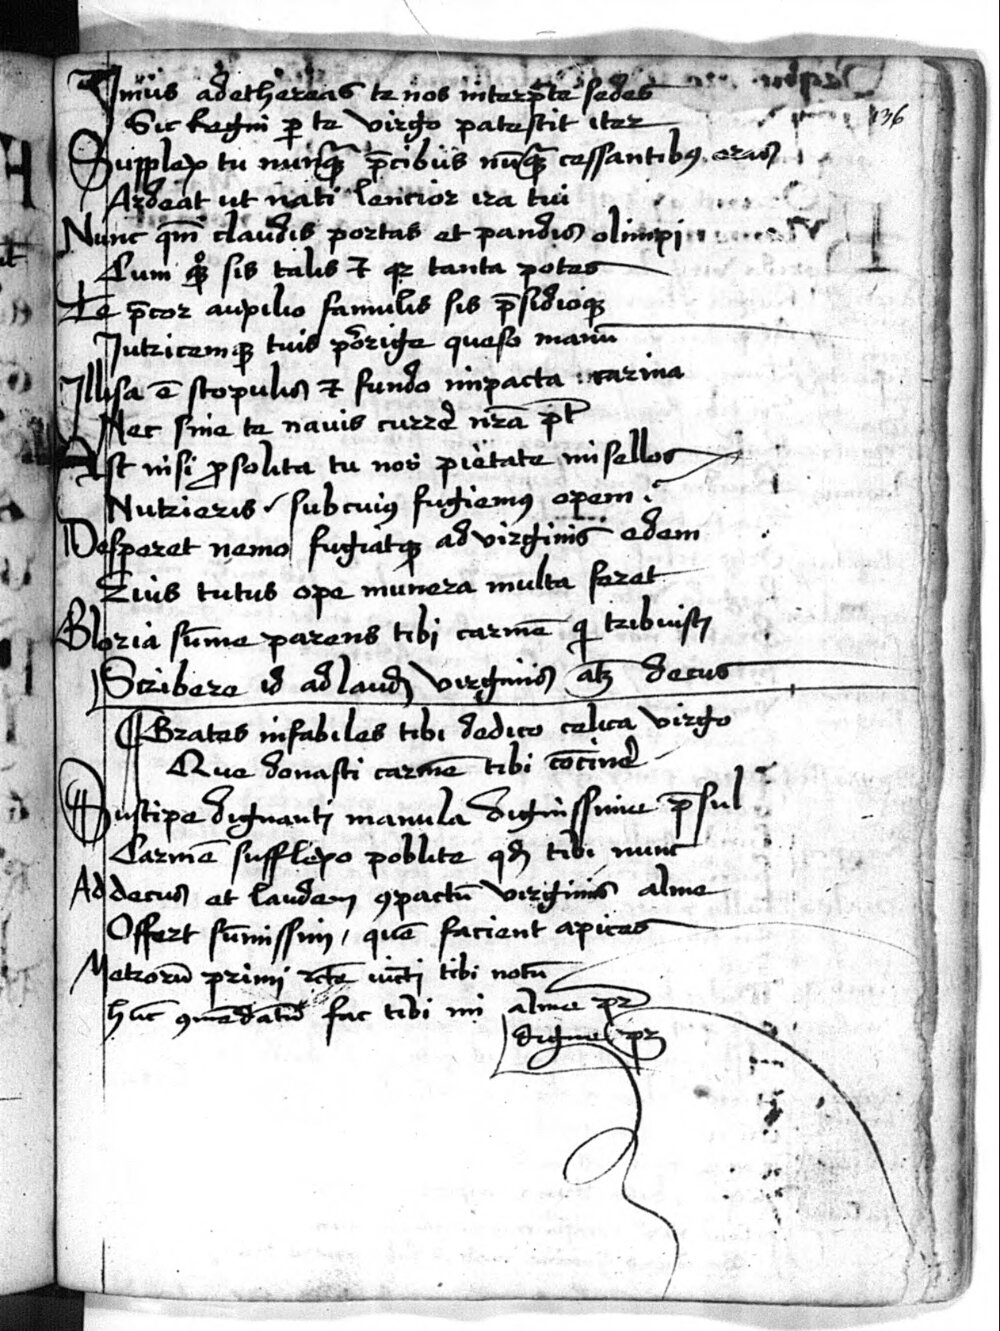 136
Imus ad ethereas te nos interp̄te sedes
Sic Regni ꝑ te virgo patescit iter
Supplex tu nunꝙ̄ p̄cibus nūꝙ̄ cessantibus oras
Ardeat ut nati lencior ira tui
Nunc qm̄ claudis portas et pandis olimpi
Cum sis talis ⁊ tanta potes
Te p̄cor auxilio famulis sis p̄sidioqꝫ
Iutricemqꝫ tuis porrige queso manū
Illisa ē scopulis ⁊ fundo inpacta carina
Nec sine te nauis currē nr̄a pt̄
Ast nisi ꝓ solita tu nos pietate misellos
Nutrieris / sub cuiꝰ fugiemꝰ opem
Desperet nemo fugiatqꝫ ad virginis edem
Eius tutus ope munera multa feret
Gloria sūme parens tibi carmē q tribuisti
Scribere id ad laudē virginis atqꝫ decus
Grates infabiles tibi dedico celica virgo
Que donasti carmē tibi cōcinē
Suscipe dignanti manula dignissime p̄sul
Carmē supplexo poblite qd̄ tibi nunc
Ad decus et laudem ꝯpactū virginis alme
Offert sūmissim / quē facient apices
Metrorū primi rc̄te iūcti tibi notū
hūc ꝯmēdatū fac tibi mi alme pr̄
digne pr̄